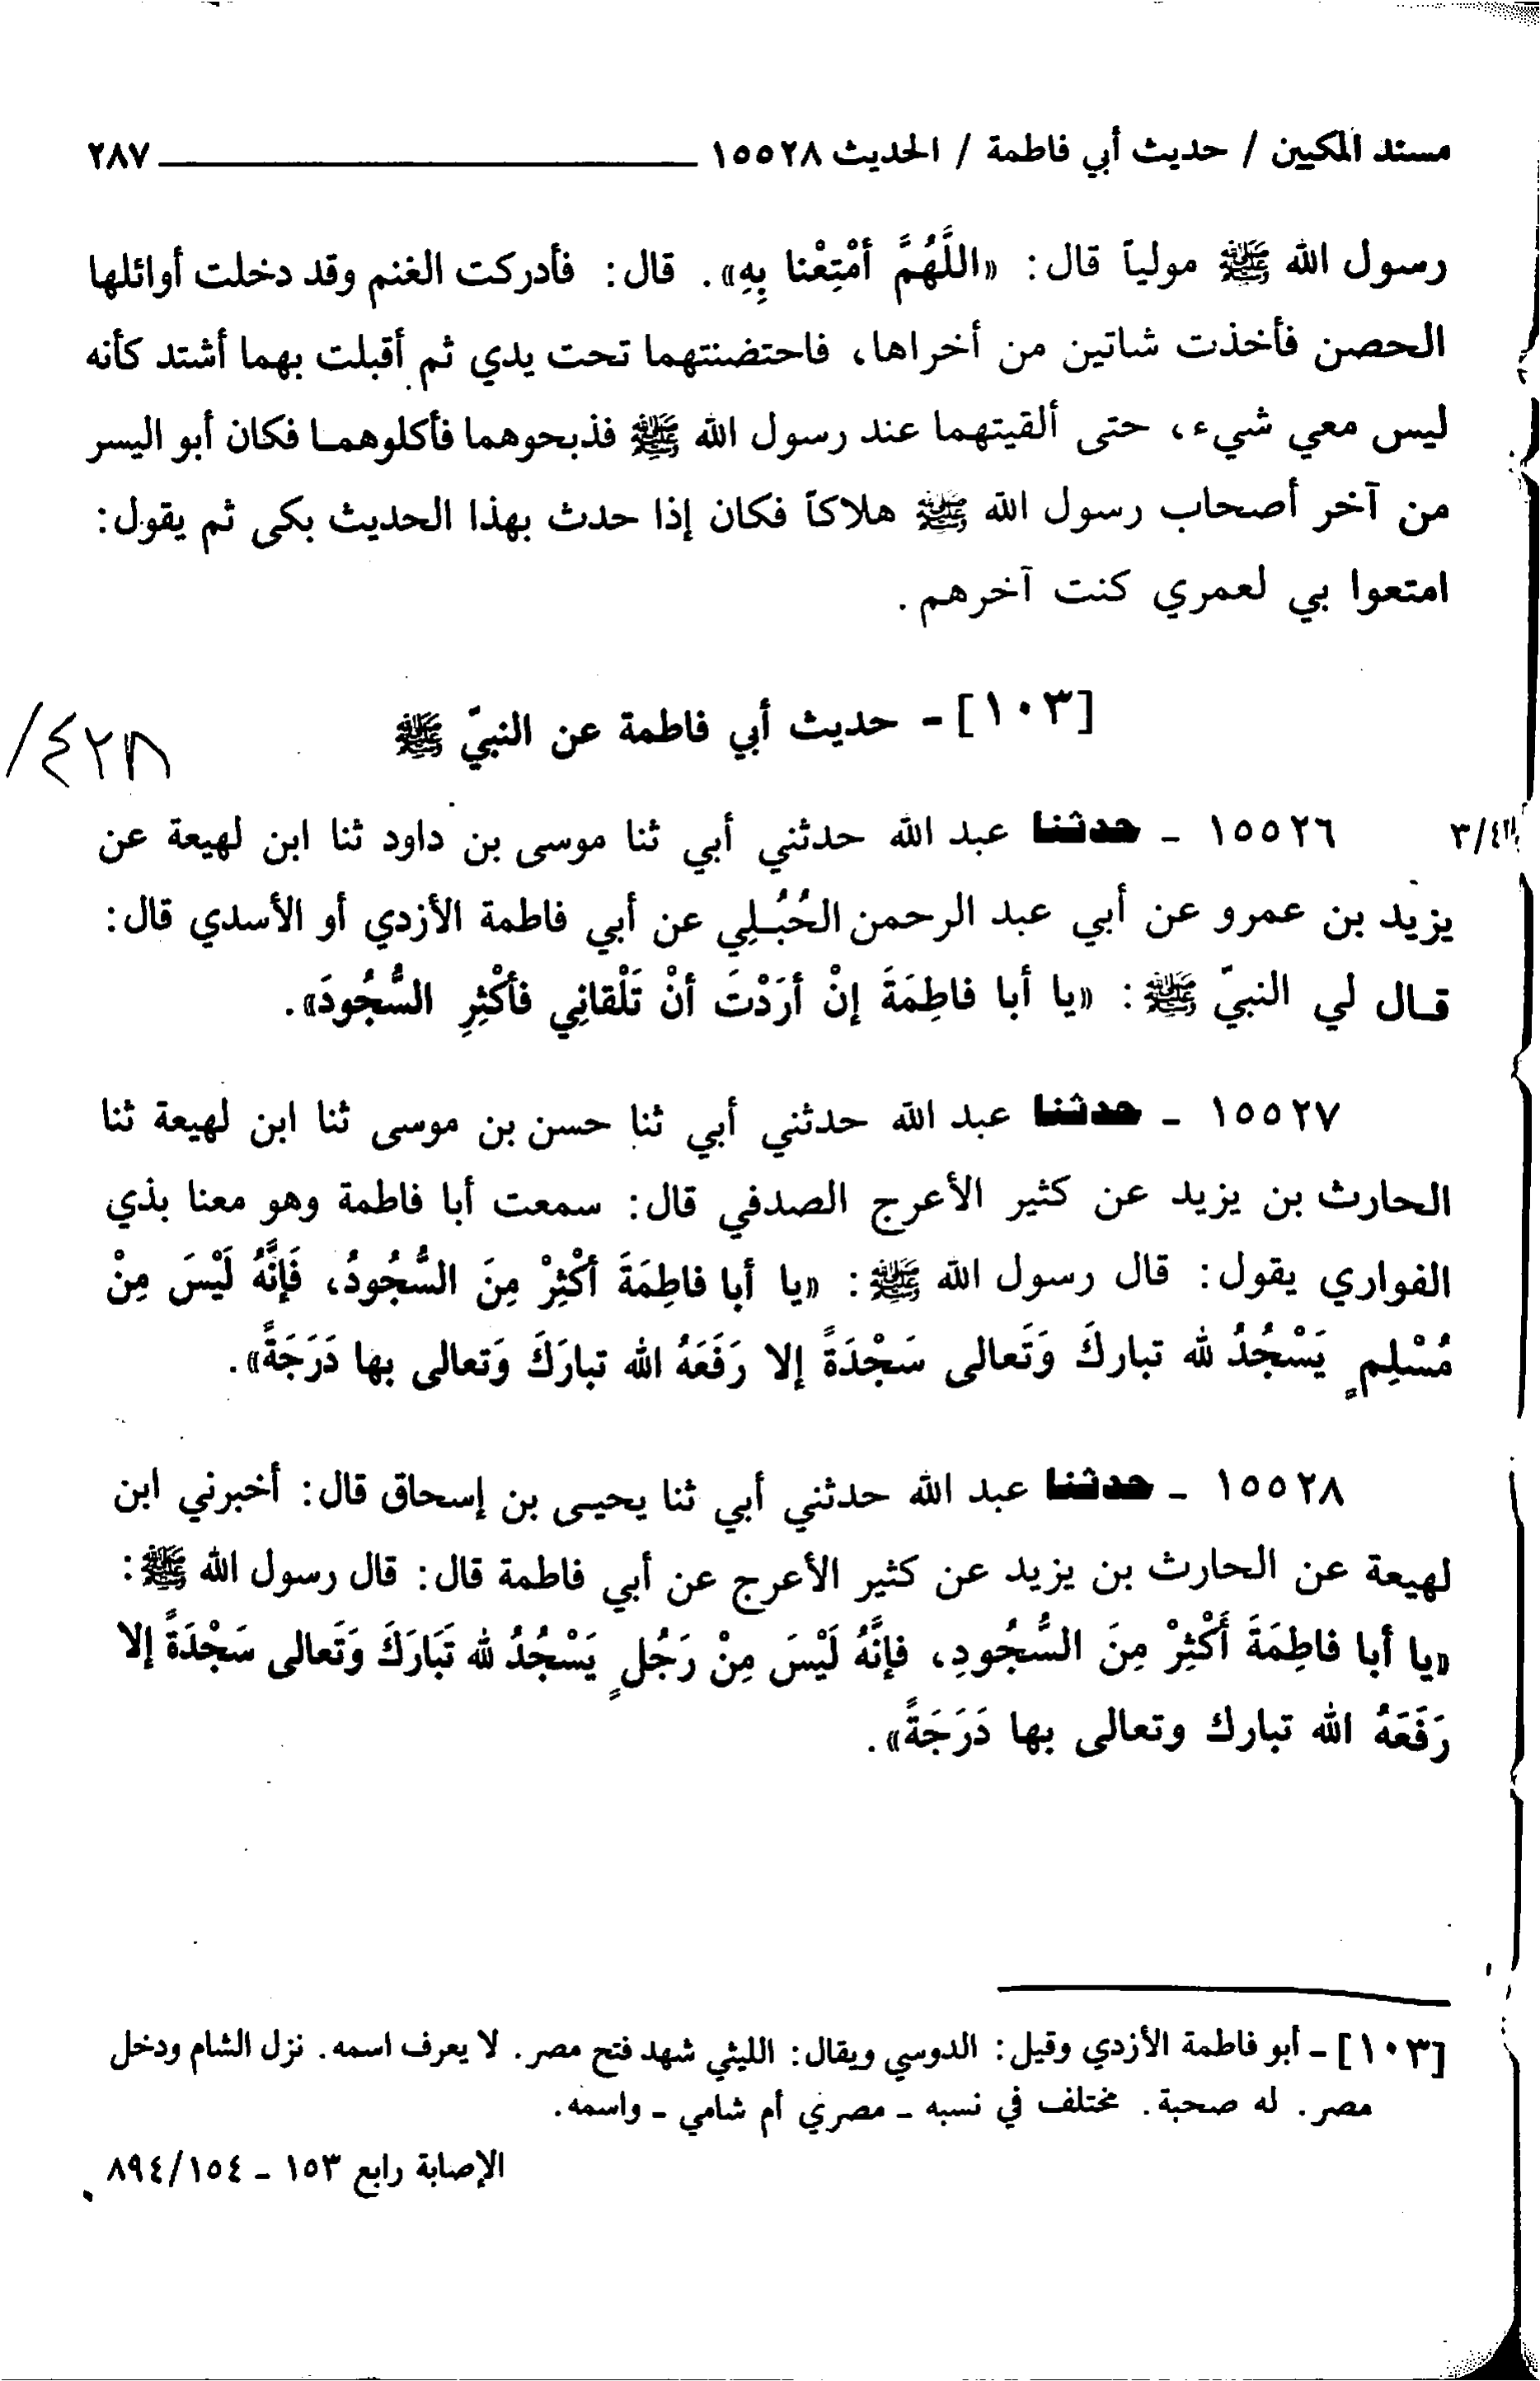 مسند المكيين / حديث أبي فاطمة / الحديث ١٥٥٢٨ ٢٨٧
رسول الله ﷺ مولياً قال: «اللَّهُمَّ أمْتِعْنا بِهِ». قال: فأدركت الغنم وقد دخلت أوائلها
الحصن فأخذت شاتين من أخراها، فاحتضنتهما تحت يدي ثم أقبلت بهما أشتد كأنه
ليس معي شيء، حتى ألقيتهما عند رسول الله ﷺ فذبحوهما فأكلوهما فكان أبو اليسر
من آخر أصحاب رسول الله ﷺ هلاكاً فكان إذا حدث بهذا الحديث بكى ثم يقول:
امتعوا بي لعمري كنت آخرهم.
[١٠٣] - حديث أبي فاطمة عن النبيّ ﷺ
/٤٢٨
١٥٥٢٦ - حدثنا عبد الله حدثني أبي ثنا موسى بن داود ثنا ابن لهيعة عن
يزيد بن عمرو عن أبي عبد الرحمن الحُبُلِي عن أبي فاطمة الأزدي أو الأسدي قال:
قال لي النبيّ ﷺ: «يا أبا فاطِمَةَ إنْ أرَدْتَ أنْ تَلْقانِي فأكْثِرِ السُّجُودَ».
١٥٥٢٧ - حدثنا عبد الله حدثني أبي ثنا حسن بن موسى ثنا ابن لهيعة ثنا
الحارث بن يزيد عن كثير الأعرج الصدفي قال: سمعت أبا فاطمة وهو معنا بذي
الفواري يقول: قال رسول الله ﷺ: «يا أبا فاطِمَةَ أكْثِرْ مِنَ السُّجُودُ، فَإنَّهُ لَيْسَ مِنْ
مُسْلِمٍ يَسْجُدُ لله تباركَ وَتَعالى سَجْدَةً إلا رَفَعَهُ الله تبارَكَ وَتعالى بها دَرَجَةً».
١٥٥٢٨ - حدثنا عبد الله حدثني أبي ثنا يحيى بن إسحاق قال: أخبرني ابن
لهيعة عن الحارث بن يزيد عن كثير الأعرج عن أبي فاطمة قال: قال رسول الله ﷺ:
«يا أبا فاطِمَةَ أَكْثِرْ مِنَ السُّجُودِ، فإنَّهُ لَيْسَ مِنْ رَجُلٍ يَسْجُدُ لله تَبَارَكَ وَتَعالى سَجْدَةً إلا
رَفَعَهُ الله تبارك وتعالى بها دَرَجَةً».
[١٠٣] - أبو فاطمة الأزدي وقيل: الدوسي ويقال: الليثي شهد فتح مصر. لا يعرف اسمه. نزل الشام ودخل
مصر. له صحبة. مختلف في نسبه - مصري أم شامي - واسمه.
الإصابة رابع ١٥٣ - ١٥٤/٨٩٤